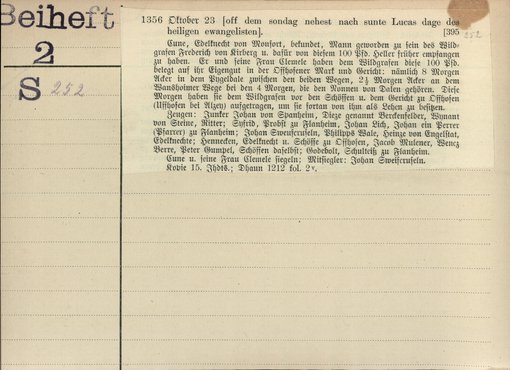 Beiheft
2
S 252
1356 Oktober 23 [off dem sondag nehest nach sunte Lucas dage des
heiligen ewangelisten]. [395
252
Cune, Edelknecht von Monfort, bekundet, Mann geworden zu sein des Wild-
grafen Frederich von Kirberg u. dafür von diesem 100 Pfd. Heller früher empfangen
zu haben. Er und seine Frau Clemele haben dem Wildgrafen diese 100 Pfd.
belegt auf ihr Eigengut in der Offhofener Mark und Gericht: nämlich 8 Morgen
Acker in dem Pygeldale zwischen den beiden Wegen, 2½ Morgen Acker an dem
Wandheimer Wege bei den 4 Morgen, die den Nonnen von Dalen gehören. Diese
Morgen haben sie dem Wildgrafen vor den Schöffen u. dem Gericht zu Offhofen
(Uffhofen bei Alzey) aufgetragen, um sie fortan von ihm als Lehen zu besitzen.
Zeugen: Junker Johan von Spanheim, Dieze genannt Berckenfelder, Wynant
von Steine, Ritter; Syfrid, Probst zu Flanheim, Johan Lich, Johan ein Perrer
(Pfarrer) zu Flanheim; Johan Sweifsrufeln, Philipps Wale, Heinze von Engelstat,
Edelknechte; Hennecken, Edelknecht u. Schöffe zu Offhofen, Jacob Mulener, Wencz
Verre, Peter Gumpel, Schöffen daselbst; Godebolt, Schulteiß zu Flanheim.
Cune u. seine Frau Clemele siegeln; Mitsiegler: Johan Sweifsrufeln.
Kopie 15. Jhdts.; Dhaun 1212 fol. 2v.